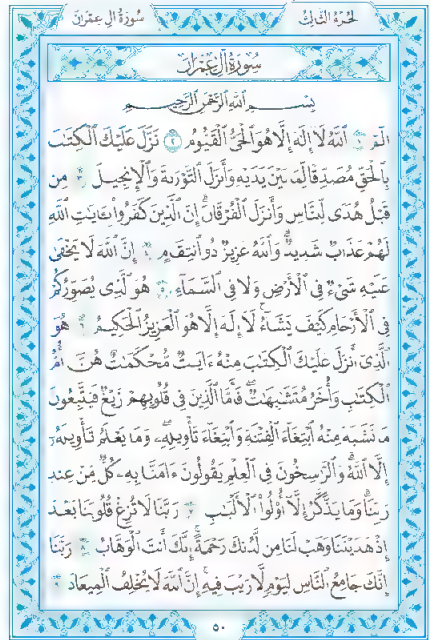 سُورَةُ آلِ عِمْرَانَ الجُزْءُ الثَّالِثُ
سُورَةُ آلِ عِمْرَانَ
بِسْمِ اللَّهِ الرَّحْمَٰنِ الرَّحِيمِ
الٓمٓ ١ ٱللَّهُ لَآ إِلَٰهَ إِلَّا هُوَ ٱلْحَىُّ ٱلْقَيُّومُ ٢ نَزَّلَ عَلَيْكَ ٱلْكِتَٰبَ
بِٱلْحَقِّ مُصَدِّقًا لِّمَا بَيْنَ يَدَيْهِ وَأَنزَلَ ٱلتَّوْرَىٰةَ وَٱلْإِنجِيلَ ٣ مِن
قَبْلُ هُدًى لِّلنَّاسِ وَأَنزَلَ ٱلْفُرْقَانَ إِنَّ ٱلَّذِينَ كَفَرُوا۟ بِـَٔايَٰتِ ٱللَّهِ
لَهُمْ عَذَابٌ شَدِيدٌ وَٱللَّهُ عَزِيزٌ ذُو ٱنتِقَامٍ ٤ إِنَّ ٱللَّهَ لَا يَخْفَىٰ
عَلَيْهِ شَىْءٌ فِى ٱلْأَرْضِ وَلَا فِى ٱلسَّمَآءِ ٥ هُوَ ٱلَّذِى يُصَوِّرُكُمْ
فِى ٱلْأَرْحَامِ كَيْفَ يَشَآءُ لَآ إِلَٰهَ إِلَّا هُوَ ٱلْعَزِيزُ ٱلْحَكِيمُ ٦ هُوَ
ٱلَّذِىٓ أَنزَلَ عَلَيْكَ ٱلْكِتَٰبَ مِنْهُ ءَايَٰتٌ مُّحْكَمَٰتٌ هُنَّ أُمُّ
ٱلْكِتَٰبِ وَأُخَرُ مُتَشَٰبِهَٰتٌ فَأَمَّا ٱلَّذِينَ فِى قُلُوبِهِمْ زَيْغٌ فَيَتَّبِعُونَ
مَا تَشَٰبَهَ مِنْهُ ٱبْتِغَآءَ ٱلْفِتْنَةِ وَٱبْتِغَآءَ تَأْوِيلِهِۦ وَمَا يَعْلَمُ تَأْوِيلَهُۥٓ
إِلَّا ٱللَّهُ وَٱلرَّٰسِخُونَ فِى ٱلْعِلْمِ يَقُولُونَ ءَامَنَّا بِهِۦ كُلٌّ مِّنْ عِندِ
رَبِّنَا وَمَا يَذَّكَّرُ إِلَّآ أُو۟لُوا۟ ٱلْأَلْبَٰبِ ٧ رَبَّنَا لَا تُزِغْ قُلُوبَنَا بَعْدَ
إِذْ هَدَيْتَنَا وَهَبْ لَنَا مِن لَّدُنكَ رَحْمَةً إِنَّكَ أَنتَ ٱلْوَهَّابُ ٨ رَبَّنَآ
إِنَّكَ جَامِعُ ٱلنَّاسِ لِيَوْمٍ لَّا رَيْبَ فِيهِ إِنَّ ٱللَّهَ لَا يُخْلِفُ ٱلْمِيعَادَ ٩
٥٠